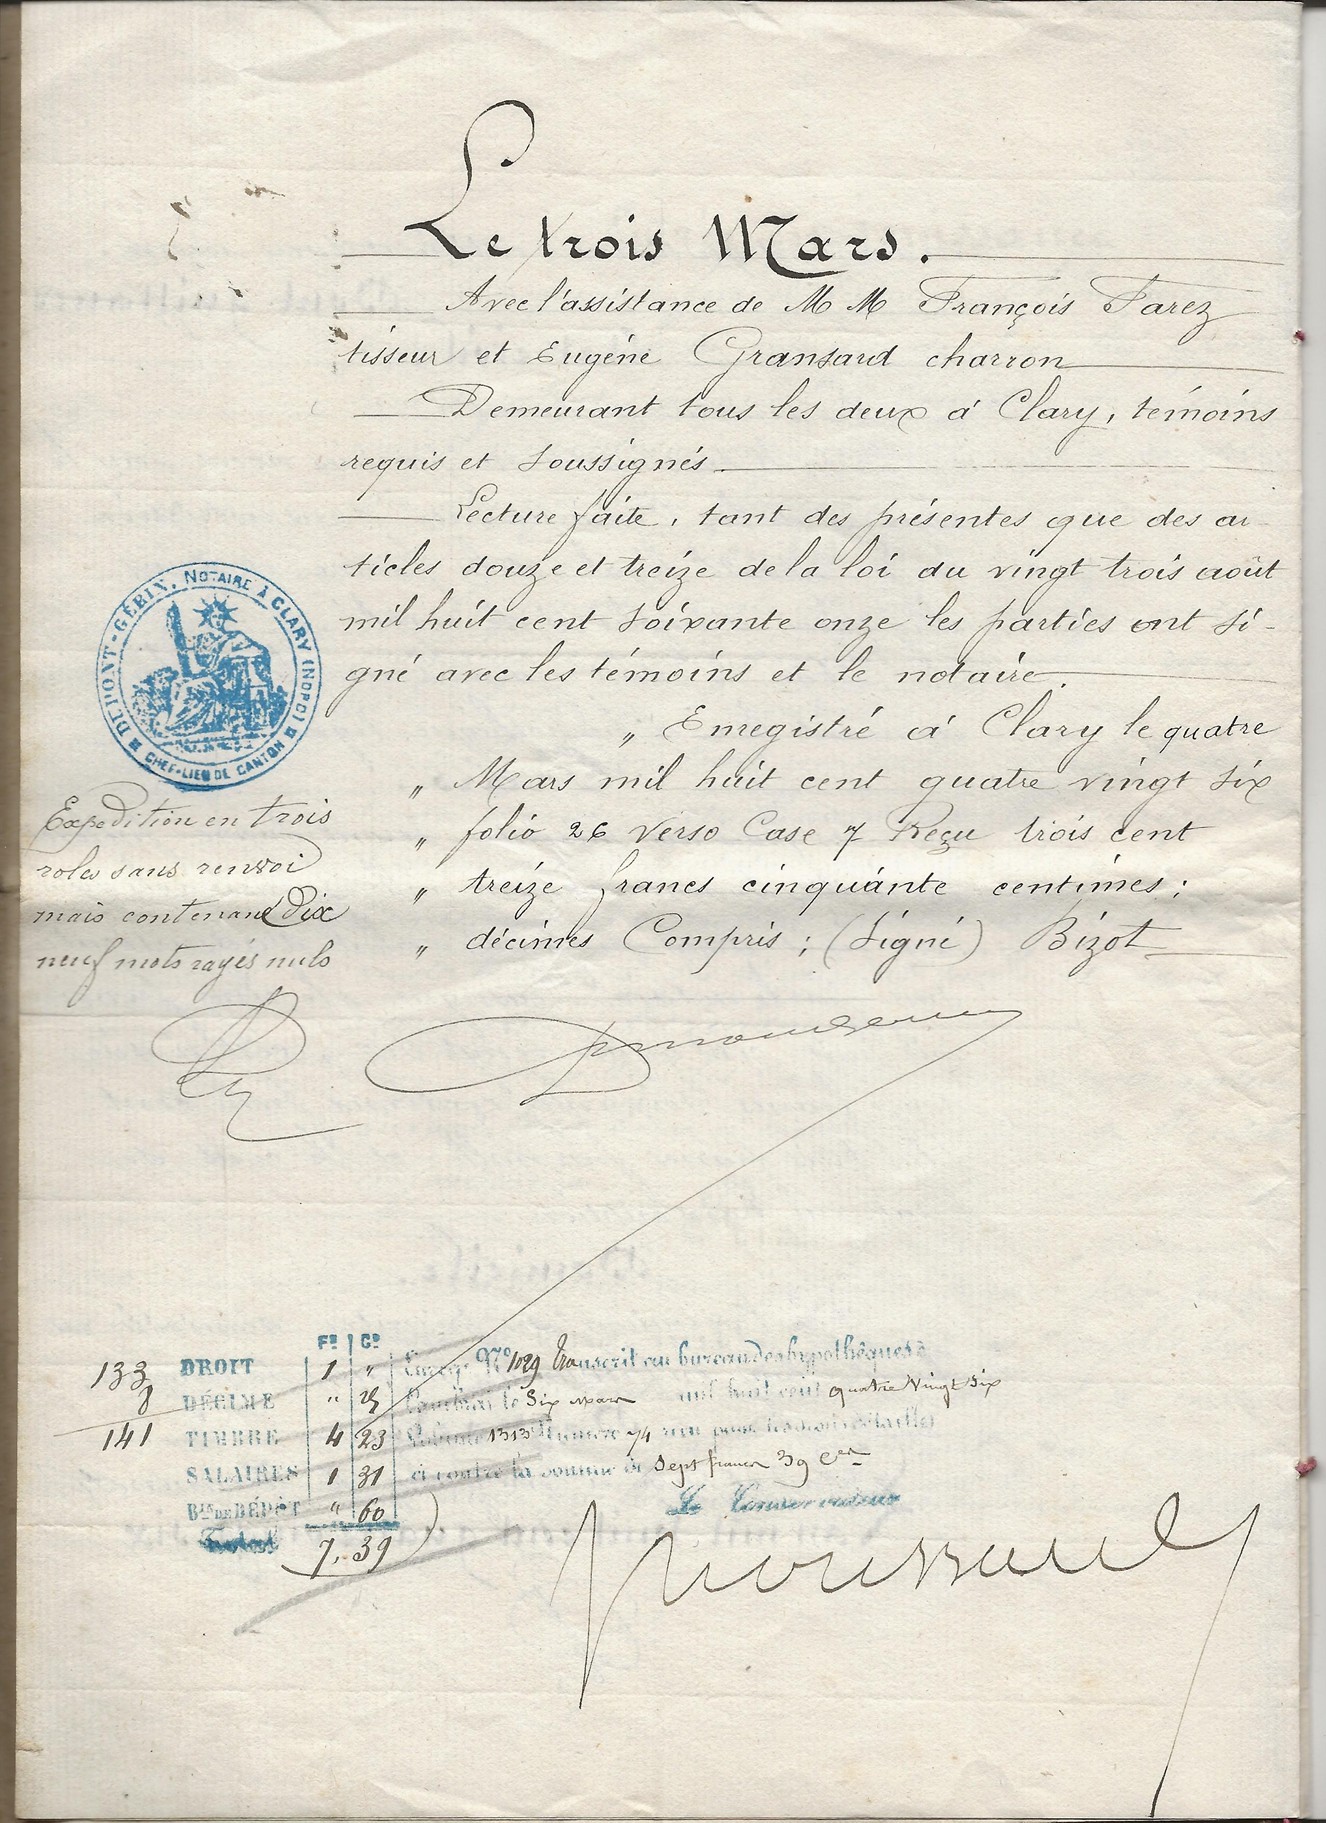 Le trois Mars.
Avec l'assistance de M M François Farez
tisseur et Eugène Gransard charron
Demeurant tous les deux à Clary, témoins
requis et soussignés.
Lecture faite, tant des présentes que des ar-
ticles douze et treize de la loi du vingt trois août
mil huit cent soixante onze les parties ont si-
gné avec les témoins et le notaire.
DUPONT-GÉRIN, NOTAIRE À CLARY (NORD)
CHEF-LIEU DE CANTON
„ Enregistré à Clary le quatre
„ Mars mil huit cent quatre vingt six
„ folio 26 verso Case 7 Reçu trois cent
„ treize francs cinquante centimes;
„ décimes Compris; (Signé) Bizot
Expédition en trois
roles sans renvoi
mais contenant Dix
neuf mots rayés nuls
133
8
141
Fs Cs
DROIT 1 „
DÉCIME „ 25
TIMBRE 4 23
SALAIRES 1 31
Bin DE DÉPÔT „ 60
Total 7. 39
Enregé No 1029 Transcrit au bureau des hypothèques à
Cambrai le Six mars mil huit cent quatre Vingt Six
Volume 1313 Numéro 74 reçu pour les droits détaillés
ci contre la somme de Sept francs 39 Cen
Le Conservateur